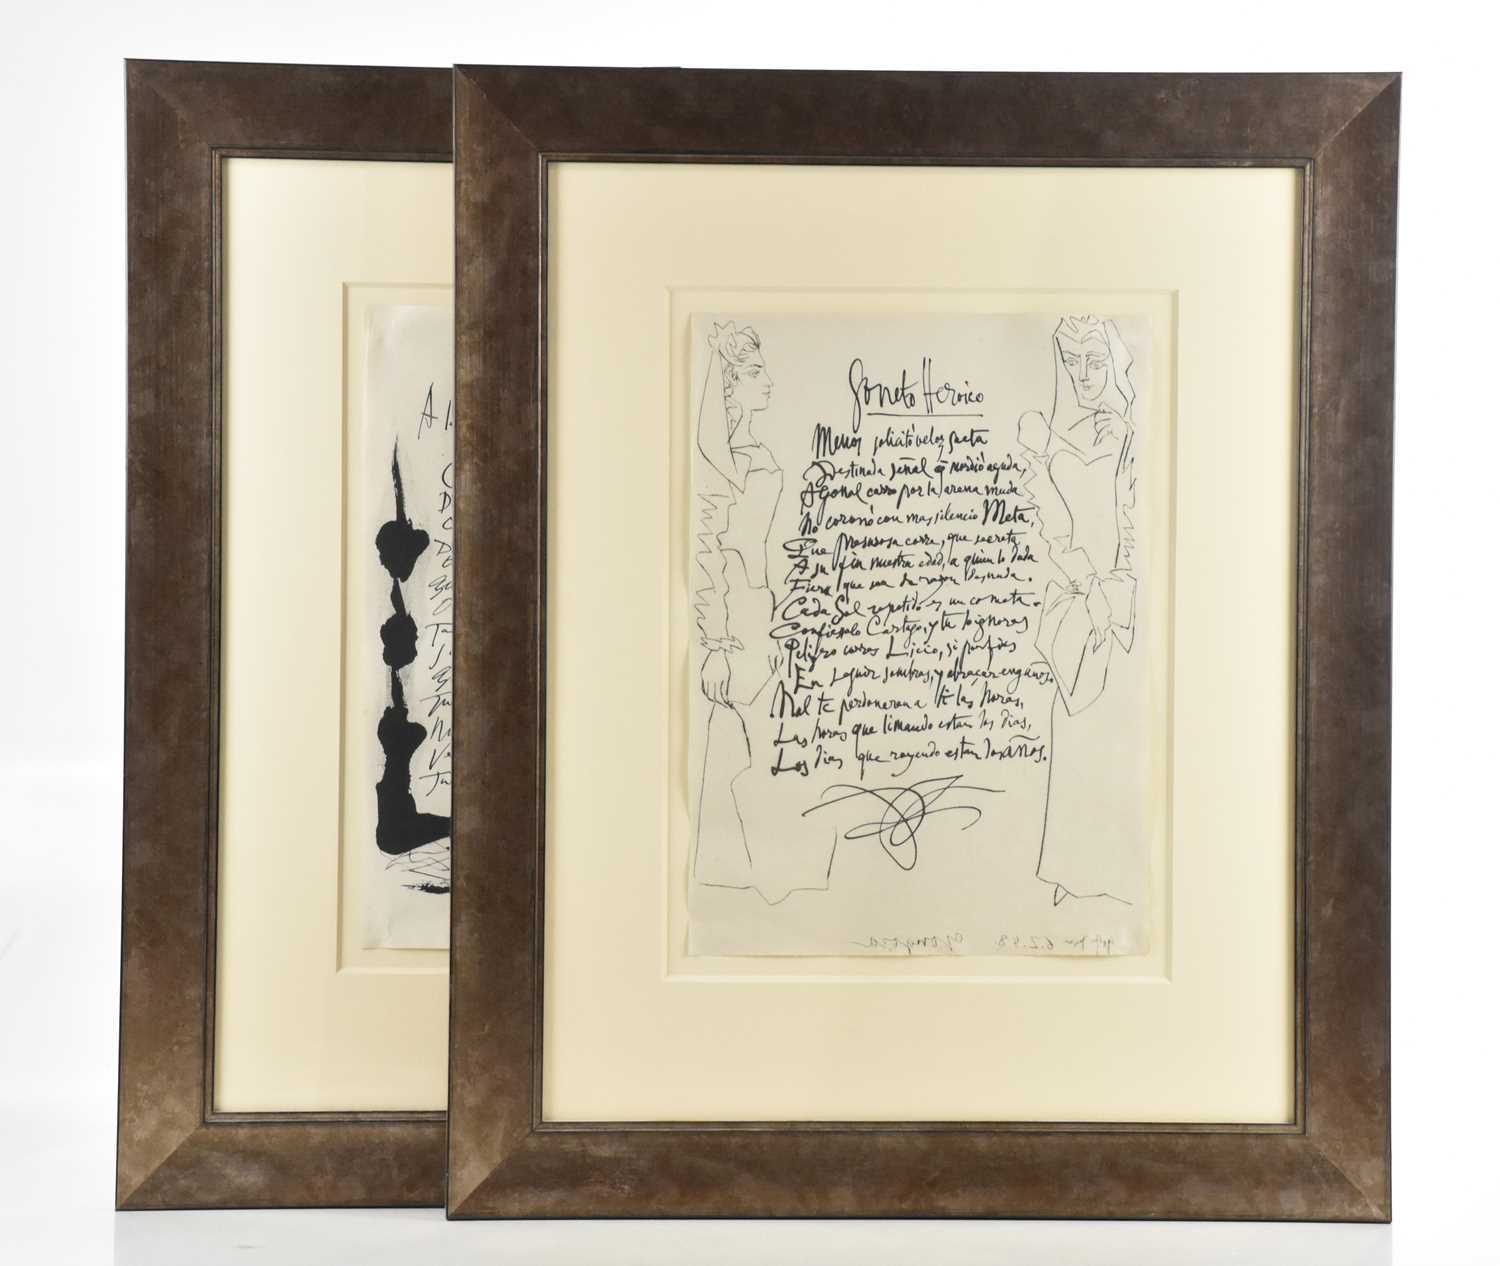 A l
C
DO
DE
Soneto Heroico
Menos solicitó veloz saeta
Destinada señal q̃ mordió aguda,
Agonal carro por la arena muda
No coronó con mas silencio Meta,
Que presurosa corre, que secreta
A su fin nuestra edad, a quien lo duda
Fiera que sea de razon desnuda.
Cada Sol repetido es un cometa.
Confiesalo Cartago, y tu lo ignoras
Peligro corres Licio, si porfias
En seguir sombras, y abraçar engaños.
Mal te perdonaran a ti las horas,
Las horas que limando estan los dias,
Los dias que royendo estan los años.
6.2.48 gongora